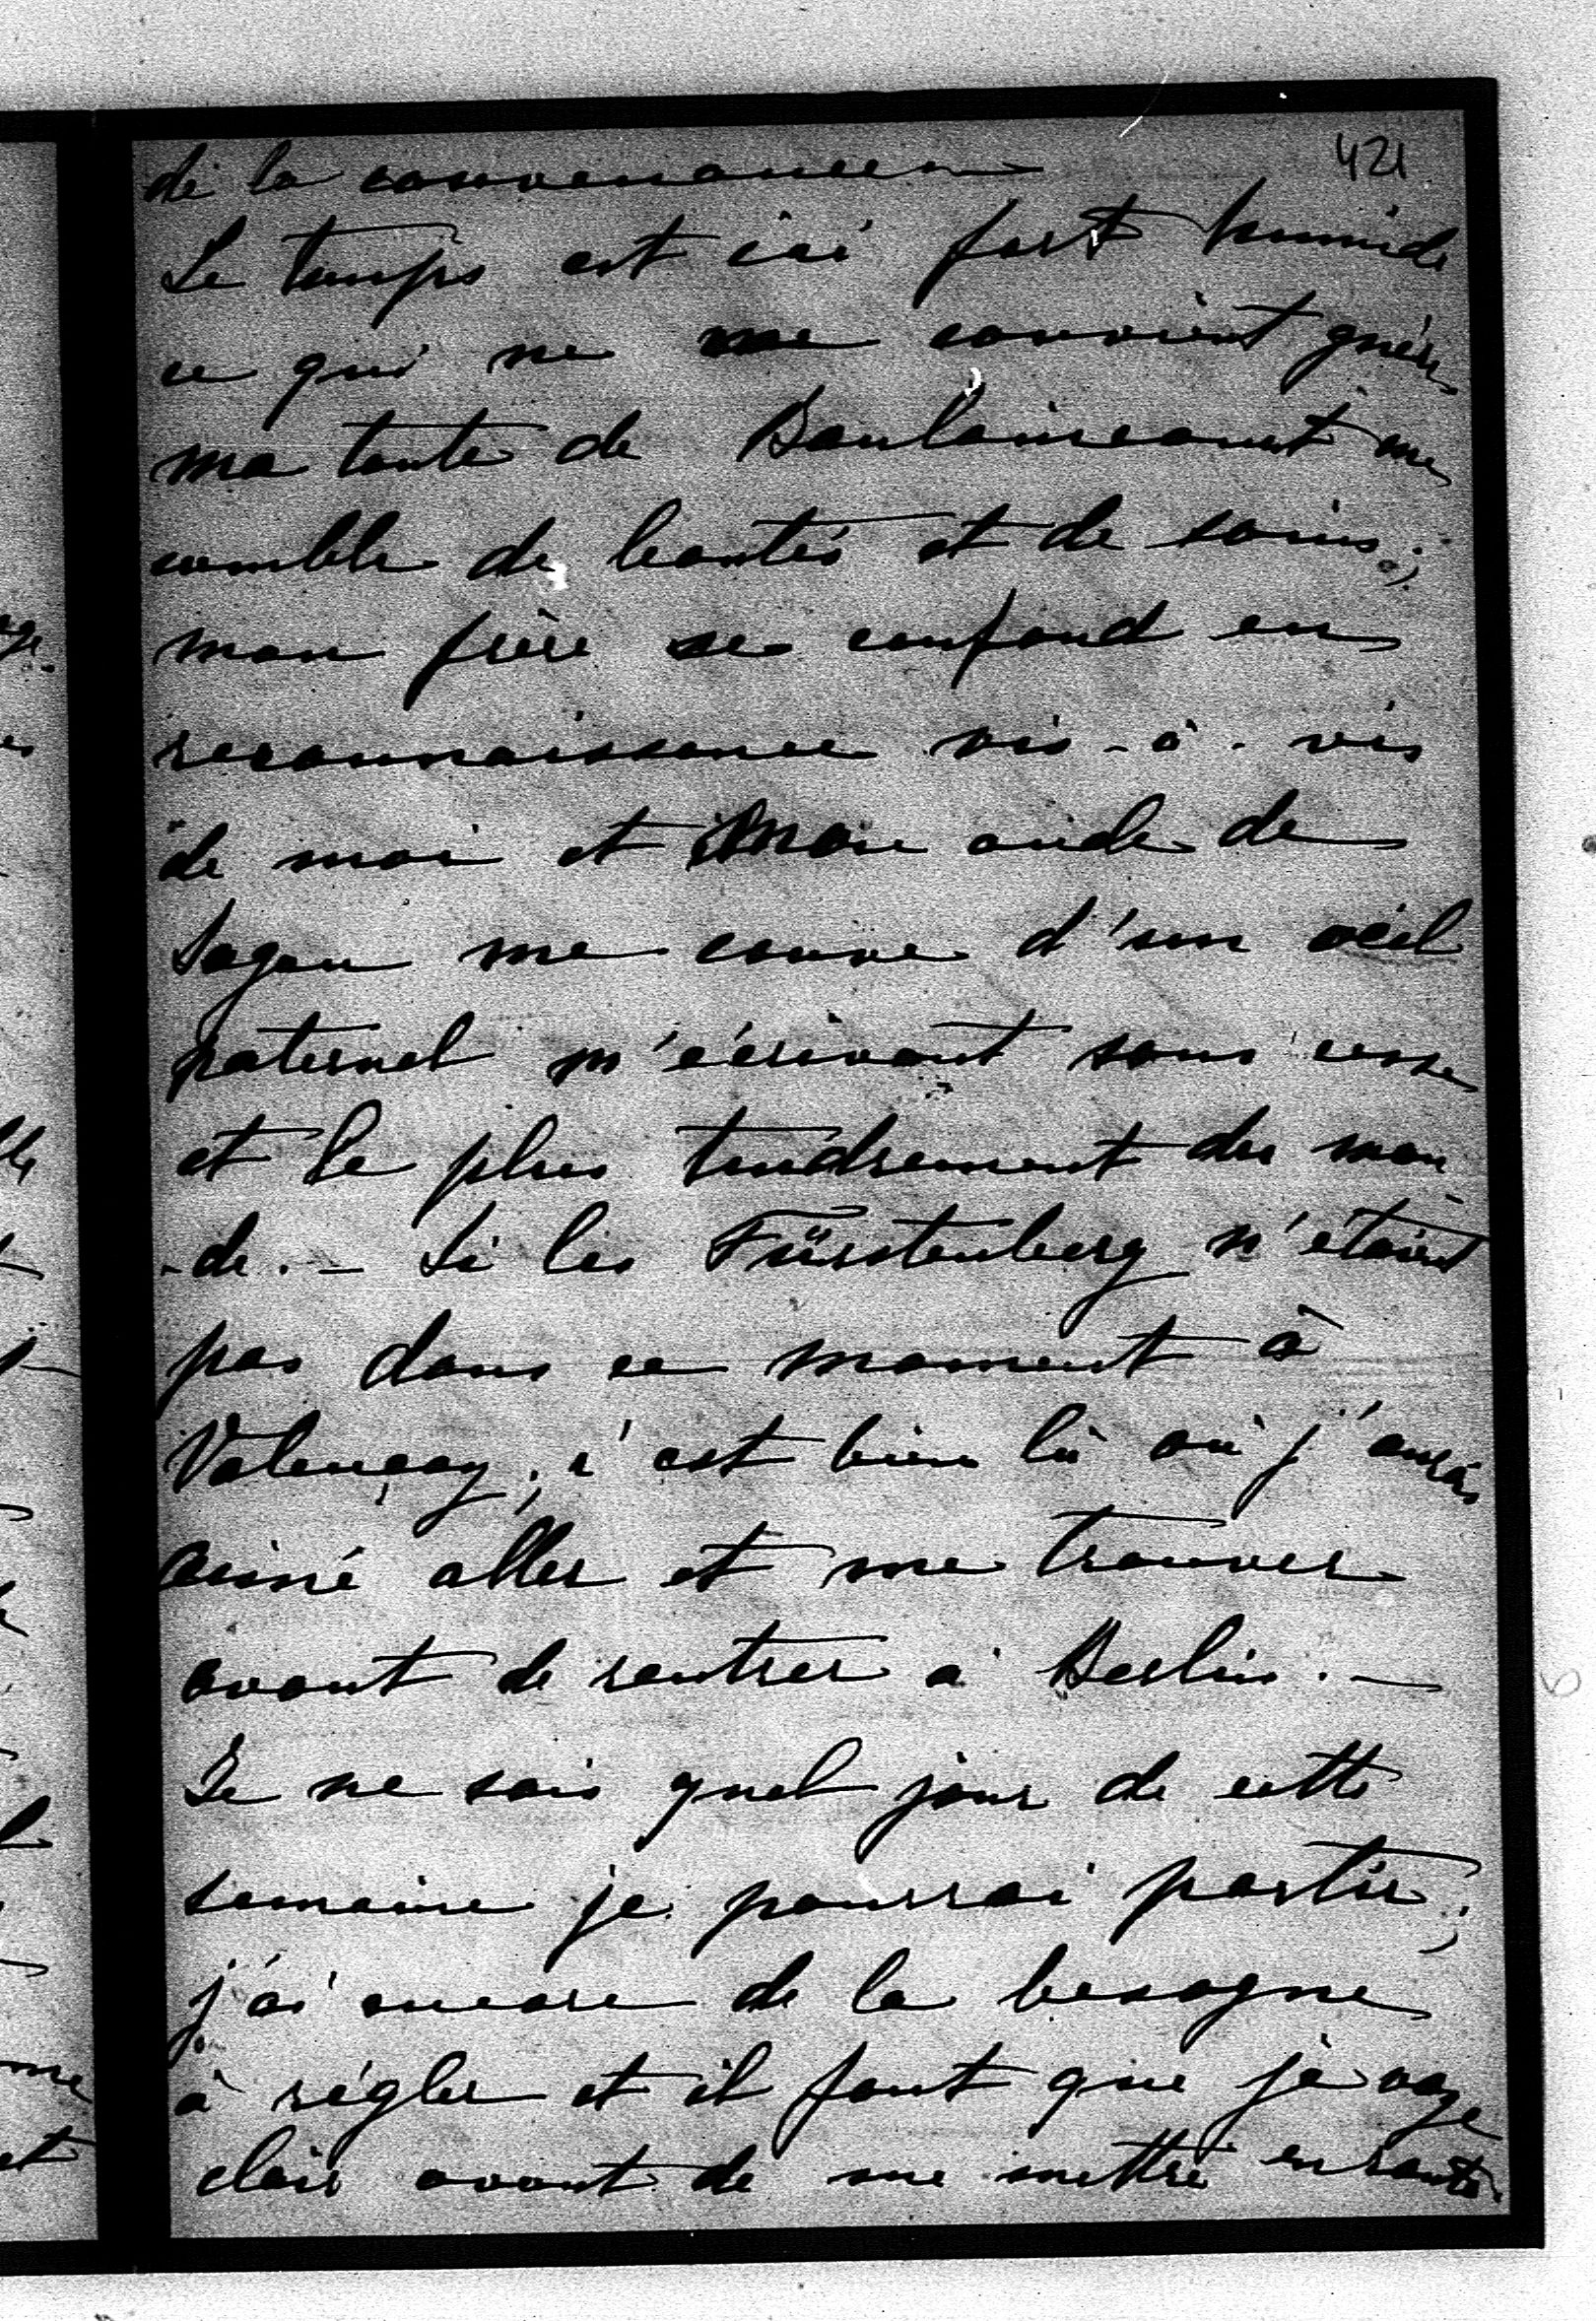 421
de la convenance. —
Le temps est ici fort humide
ce qui ne me convient guère
ma tante de Boulaincourt me
comble de bontés et de soins ;
mon frère se confond en
reconnaissance vis-à-vis
de moi et mon oncle de
Sagan me couve d'un œil
paternel m'écrivant sans cesse
et le plus tendrement du mon
-de. — Si les Fürstenberg n'étaient
pas dans ce moment à
Valençay, c'est bien là où j'aurais
aimé aller et me trouver
avant de rentrer à Berlin. —
Je ne sais quel jour de cette
semaine je pourrai partir ;
j'ai encore de la besogne
à régler et il faut que je voye
clair avant de me mettre en route.